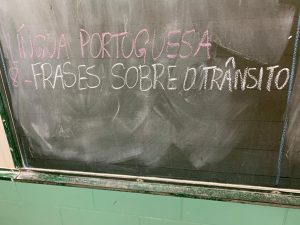 LÍNGUA PORTUGUESA
- FRASES SOBRE O TRÂNSITO